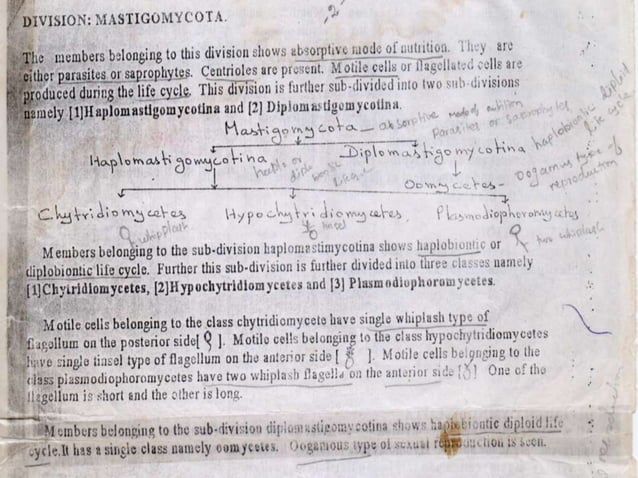 -2-
DIVISION: MASTIGOMYCOTA.
The members belonging to this division shows absorptive mode of nutrition. They are
either parasites or saprophytes. Centrioles are present. Motile cells or flagellated cells are
produced during the life cycle. This division is further sub-divided into two sub-divisions
namely [1]Haplomastigomycotina and [2] Diplomastigomycotina.
Mastigomycota - absorptive mode of nutrition
Parasites or saprophytes
Haplomastigomycotina Diplomastigomycotina haplobiontic diploid
life cycle
haplo or
diplobiontic
Oomycetes - oogamous type of
reproduction
Chytridiomycetes Hypochytridiomycetes, Plasmodiophoromycetes
whiplash tinsel two whiplash
Members belonging to the sub-division haplomastimycotina shows haplobiontic or
diplobiontic life cycle. Further this sub-division is further divided into three classes namely
[1]Chytridiomycetes, [2]Hypochytridiomycetes and [3] Plasmodiophoromycetes.
Motile cells belonging to the class chytridiomycete have single whiplash type of
flagollum on the posterior side[ ]. Motile cells belonging to the class hypochytridiomycetes
have single tinsel type of flagellum on the anterior side [ ]. Motile cells belonging to the
class plasmodiophoromycetes have two whiplash flagella on the anterior side [ ] One of the
flagellum is short and the other is long.
Members belonging to the sub-division diplomastigomycotina shows haplobiontic diploid life
cycle.It has a single class namely oomycetes. Oogamous type of sexual reproduction is seen.